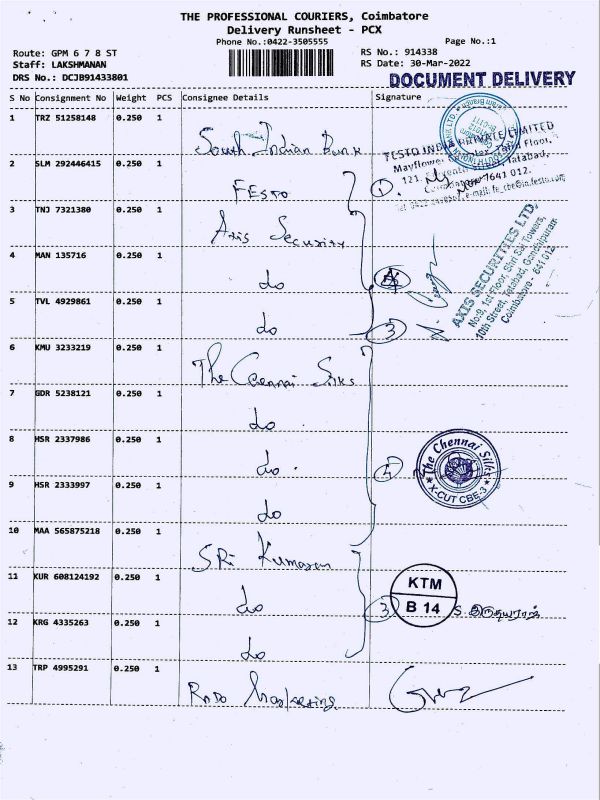 THE PROFESSIONAL COURIERS, Coimbatore
Delivery Runsheet - PCX
Phone No.:0422-3505555
Page No.:1
Route: GPM 6 7 8 ST
RS No.: 914338
Staff: LAKSHMANAN
RS Date: 30-Mar-2022
DRS No.: DCJB91433801
DOCUMENT DELIVERY
S No Consignment No Weight PCS Consignee Details Signature
1 TRZ 51258148 0.250 1 South Indian Bank
2 SLM 292446415 0.250 1 FESTO
3 TNJ 7321380 0.250 1 Axis Security
4 MAN 135716 0.250 1 do
5 TVL 4929861 0.250 1 do 3
6 KMU 3233219 0.250 1 The Chennai Silks
7 GDR 5238121 0.250 1 do
8 HSR 2337986 0.250 1 do
9 HSR 2333997 0.250 1 do
10 MAA 565875218 0.250 1 SRi Kumaran
11 KUR 608124192 0.250 1 do 3
12 KRG 4335263 0.250 1 do
13 TRP 4995291 0.250 1
INDIA PRIVATE LIMITED
Mayflower
641 012.
AXIS SECURITIES LTD.
No:9, 1st Floor, Shri Sai Towers,
10th Street, Tatabad, Gandhipuram
Coimbatore - 641 012
The Chennai Silks
X-CUT CBE-3
KTM
B 14